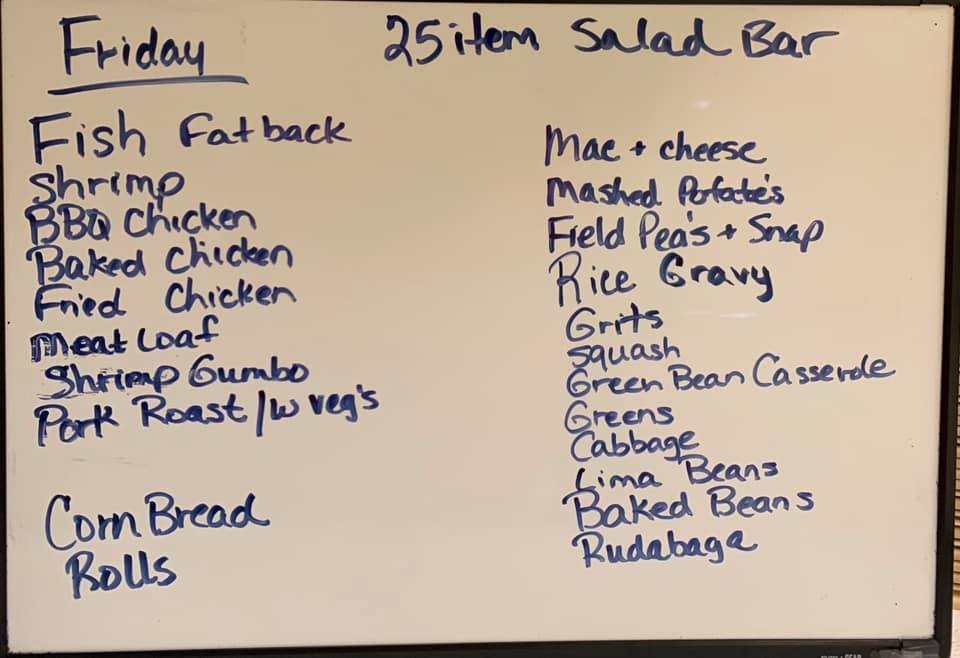 Friday
25 item Salad Bar
Fish Fatback
Shrimp
BBQ Chicken
Baked Chicken
Fried Chicken
Meat Loaf
Shrimp Gumbo
Pork Roast /w veg's
Corn Bread
Rolls
Mac + cheese
Mashed Potatoe's
Field Pea's + Snap
Rice Gravy
Grits
Squash
Green Bean Casserole
Greens
Cabbage
Lima Beans
Baked Beans
Rudabaga